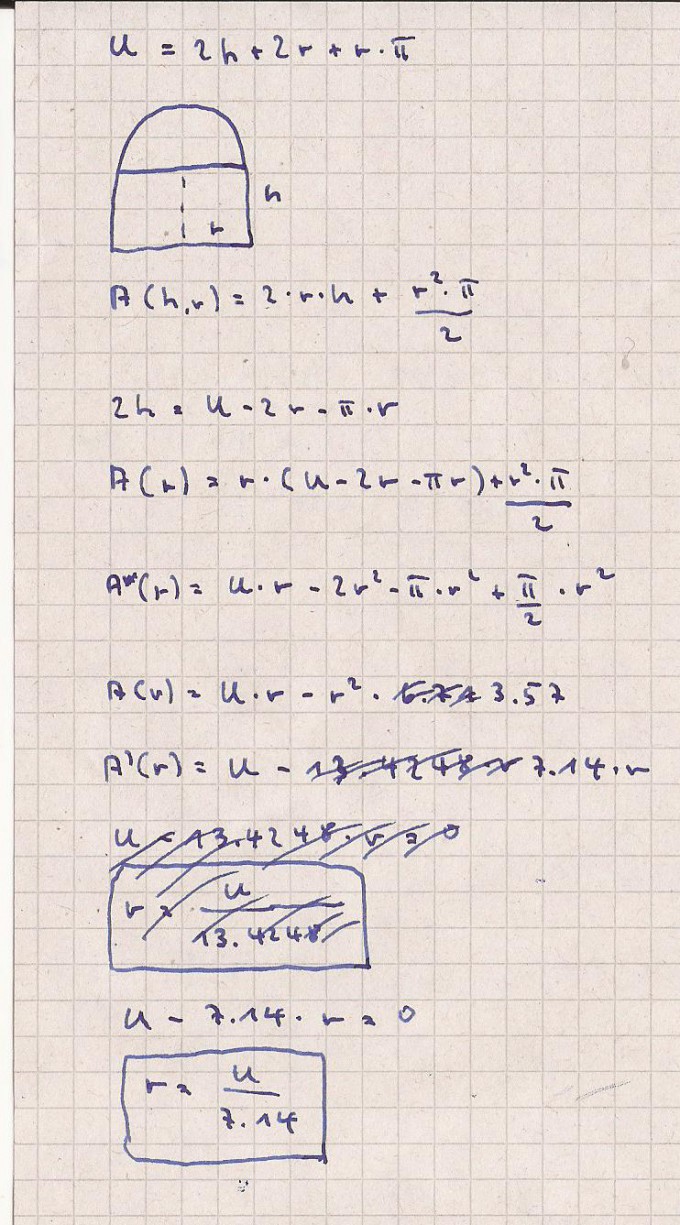 U = 2h + 2r + r · π
h
r
A(h,r) = 2·r·h + r²·π/2
2h = U - 2r - π·r
A(r) = r·(U - 2r - πr) + r²·π/2
A(r) = U·r - 2r² - π·r² + π/2 · r²
A(r) = U·r - r² · 3.57
A'(r) = U - 13.4248 r 7.14·r
U - 13.4248·r = 0
r = U/13.4248
U - 7.14·r = 0
r = U/7.14